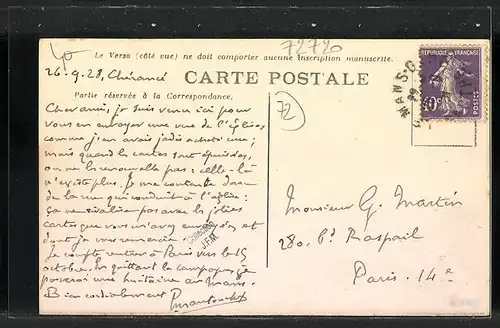 72720
Le Verso (côté vue) ne doit comporter aucune Inscription manuscrite.
26.9.28, Chérancé
CARTE POSTALE
Partie réservée à la Correspondance.
RÉPUBLIQUE FRANÇAISE
POSTES
72
Cher ami, je suis venu ici pour
vous en envoyer une vue de l'Église,
comme j'en avais jadis acheté une;
mais quand les cartes sont épuisées,
on ne les renouvelle pas: celle-là
n'existe plus. Je me contente donc
de la rue qui conduit à l'église:
ça ne rivalise pas avec les jolies
cartes que vous m'avez envoyées et
dont je vous remercie.
Je compte rentrer à Paris vers le 15
octobre. En quittant la campagne, je
passerai une huitaine au Mans.
Bien cordialement
Collection
J.F.M.
Monsieur G. Martin
280, Bd Raspail
Paris. 14e